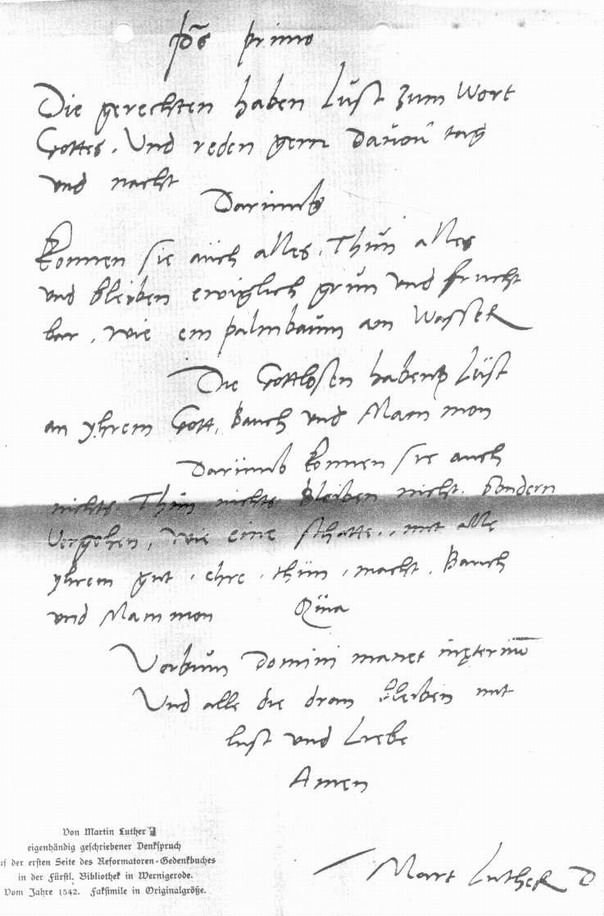 ps primo
Die gerechten haben lust zum Wort
Gottes. Und reden gern dauon tag
und nacht
Darumb
konnen sie auch alles, Thun alles
und bleiben ewiglich grun und frucht
bar, wie ein palmbaum am WasseR
Die Gottlosen haben lust
an yhrem Gott, Bauch und Mammon
Darumb konnen sie auch
nichts. Thun nichts bleiben nicht. Sondern
Vergehen, wie eine schatte, mit alle
yhrem gut, ehre, thun, macht, Bauch
und Mammon Quia
Verbum Domini manet inęternū
Und alle die dran bleiben mit
lust und Liebe
Amen
Mart LutheR D
Von Martin Luther
eigenhändig geschriebener Denkspruch
uf der ersten Seite des Reformatoren-Gedenkbuches
in der Fürstl. Bibliothek in Wernigerode.
Vom Jahre 1542. Faksimile in Originalgröße.